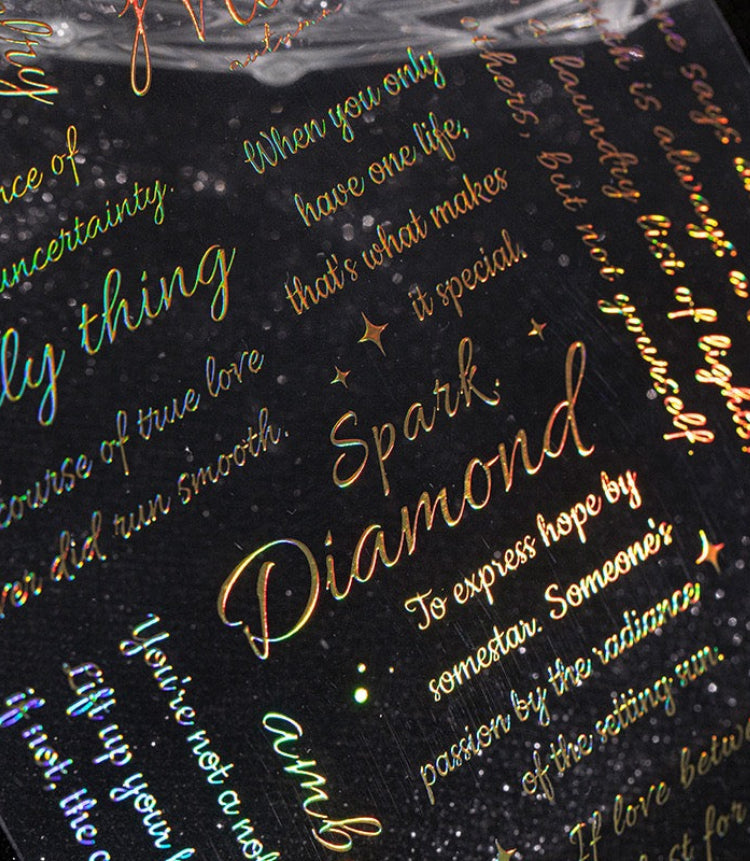 autumn
When you only
have one life,
that's what makes
it special.
nce of
uncertainty.
ly thing
course of true love
ver did run smooth.
Spark.
Diamond
To express hope by
somestar. Someone's
passion by the radiance
of the setting sun.
ne says
is always a
laundry list of lights
others, but not yourself.
You're not a not
Lift up your h
if not, the c
amb
If love betw
st for